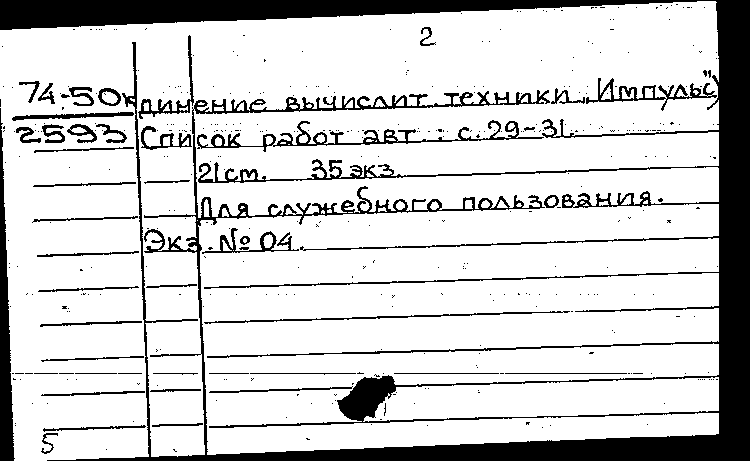 2
74-50к
2593
динение вычислит. техники „Импульс")
Список работ авт.: с. 29-31.
21 см. 35 экз.
Для служебного пользования.
Экз. № 04.
5